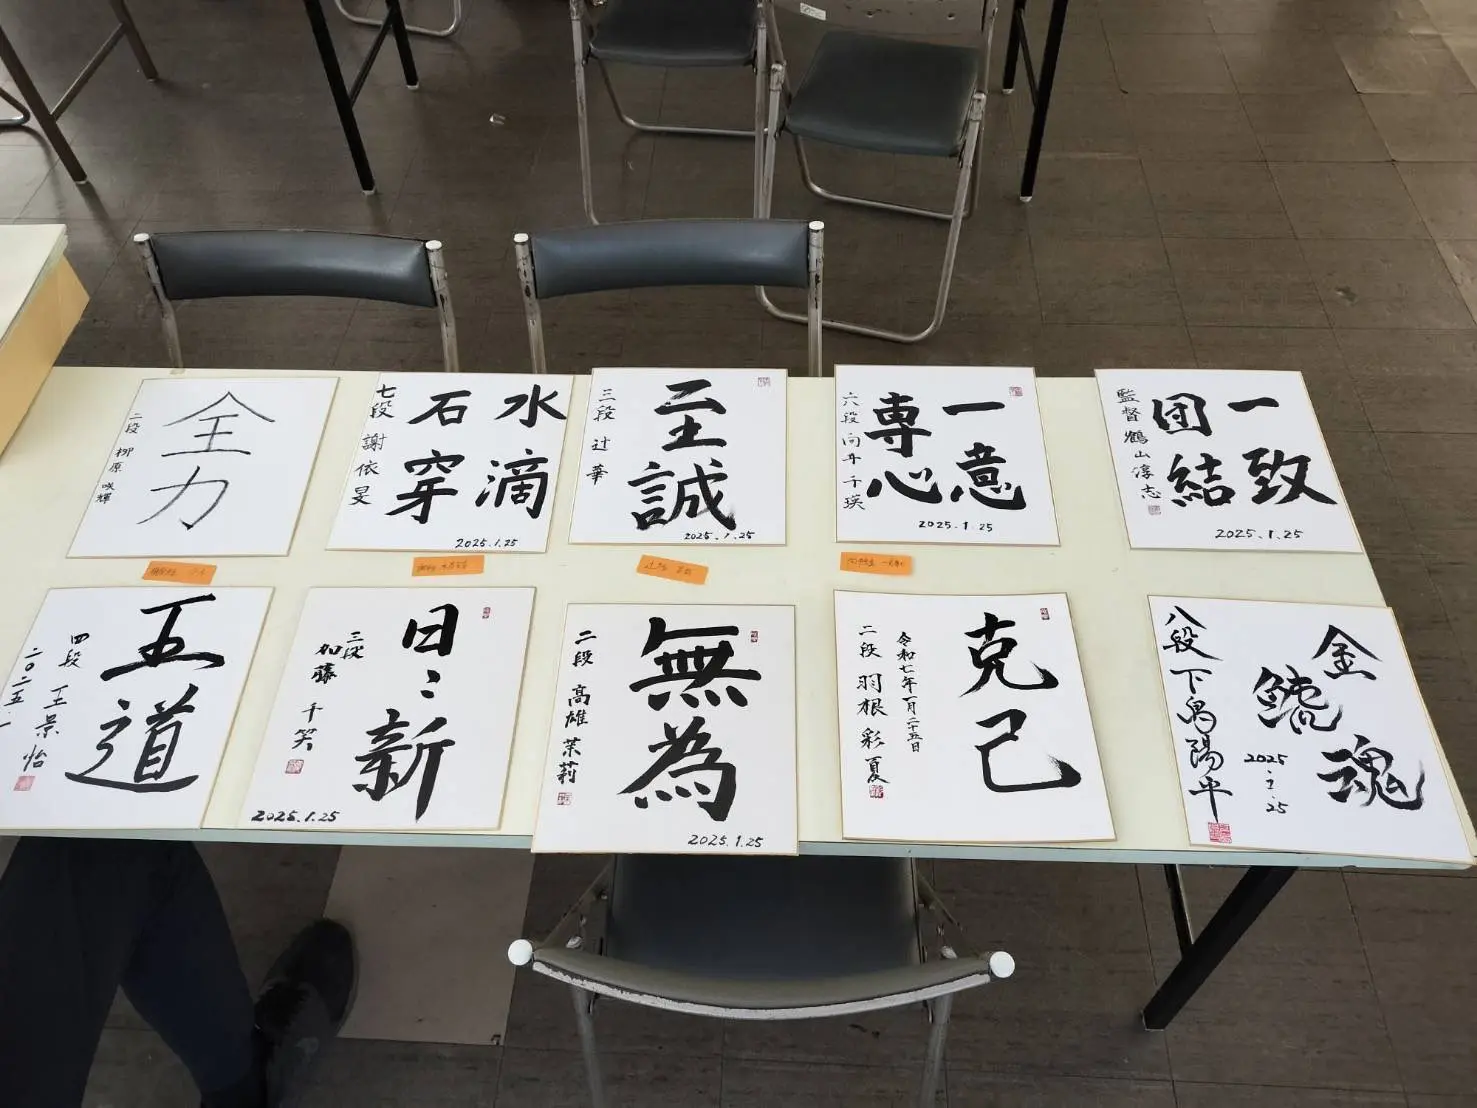 全力
二段 柳原 咲輝
水滴
石穿
七段 謝依旻
2025.1.25
至誠
三段 辻華
2025.1.25
一意
専心
六段 向井千瑛
2025.1.25
一致
団結
監督 鶴山淳志
2025.1.25
王道
四段 王景怡
日々新
三段 加藤千笑
2025.1.25
無為
二段 高雄茉莉
2025.1.25
克己
令和七年一月二十五日
二段 羽根彩夏
金鯱魂
八段 下島陽平
2025